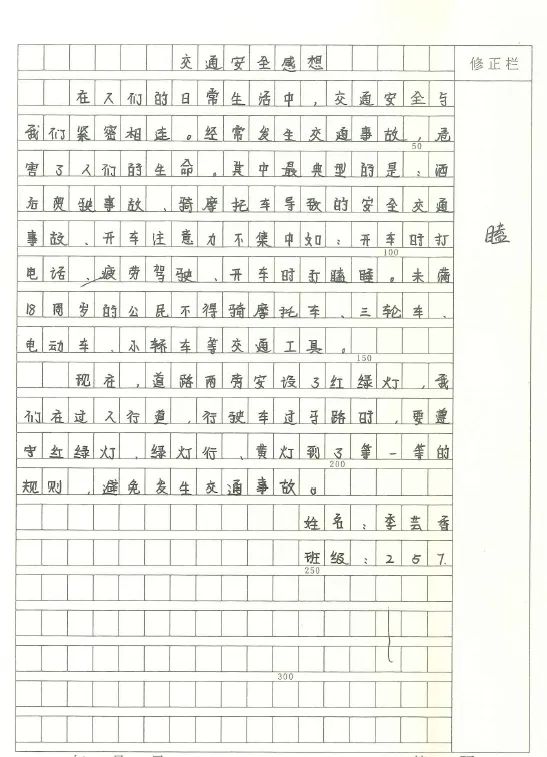 交通安全感想
修正栏
在人们的日常生活中，交通安全与
我们紧密相连。经常发生交通事故，危
50
害了人们的生命。其中最典型的是：酒
后贺驶事故、骑摩托车导致的安全交通
事故、开车注意力不集中如：开车时打
100
瞌
电话、疲劳驾驶、开车时打瞌睡。未满
18周岁的公民不得骑摩托车、三轮车、
电动车、小轿车等交通工具。
150
现在，道路两旁安设了红绿灯，我
们在过人行道，行驶车过马路时，要遵
守红绿灯、绿灯行、黄灯到了等一等的
200
规则，避免发生交通事故。
姓名：李芸香
班级：257.
250
300